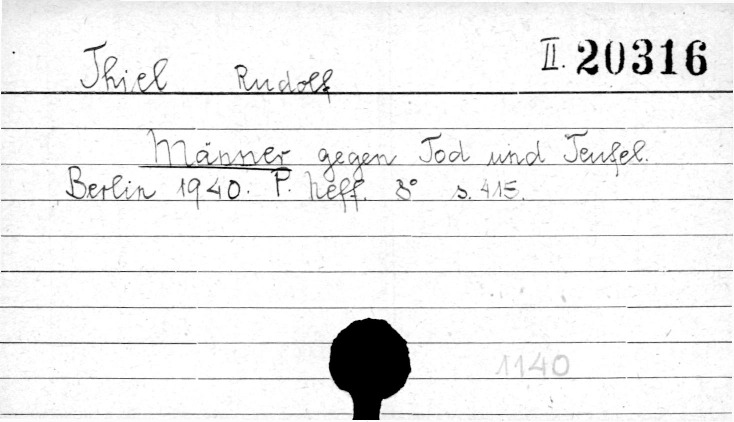 Thiel Rudolf II. 20316
Männer gegen Tod und Teufel.
Berlin 1940. P. Neff. 8° s. 415.
1140